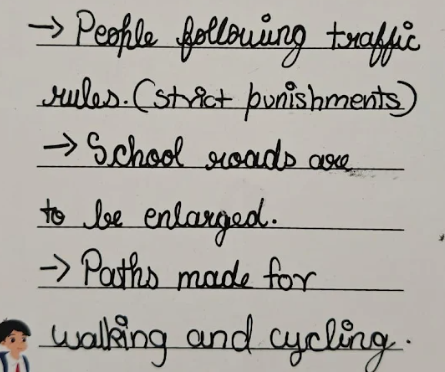 → People following traffic
rules. (strict punishments)
→ School roads are
to be enlarged.
→ Paths made for
walking and cycling.